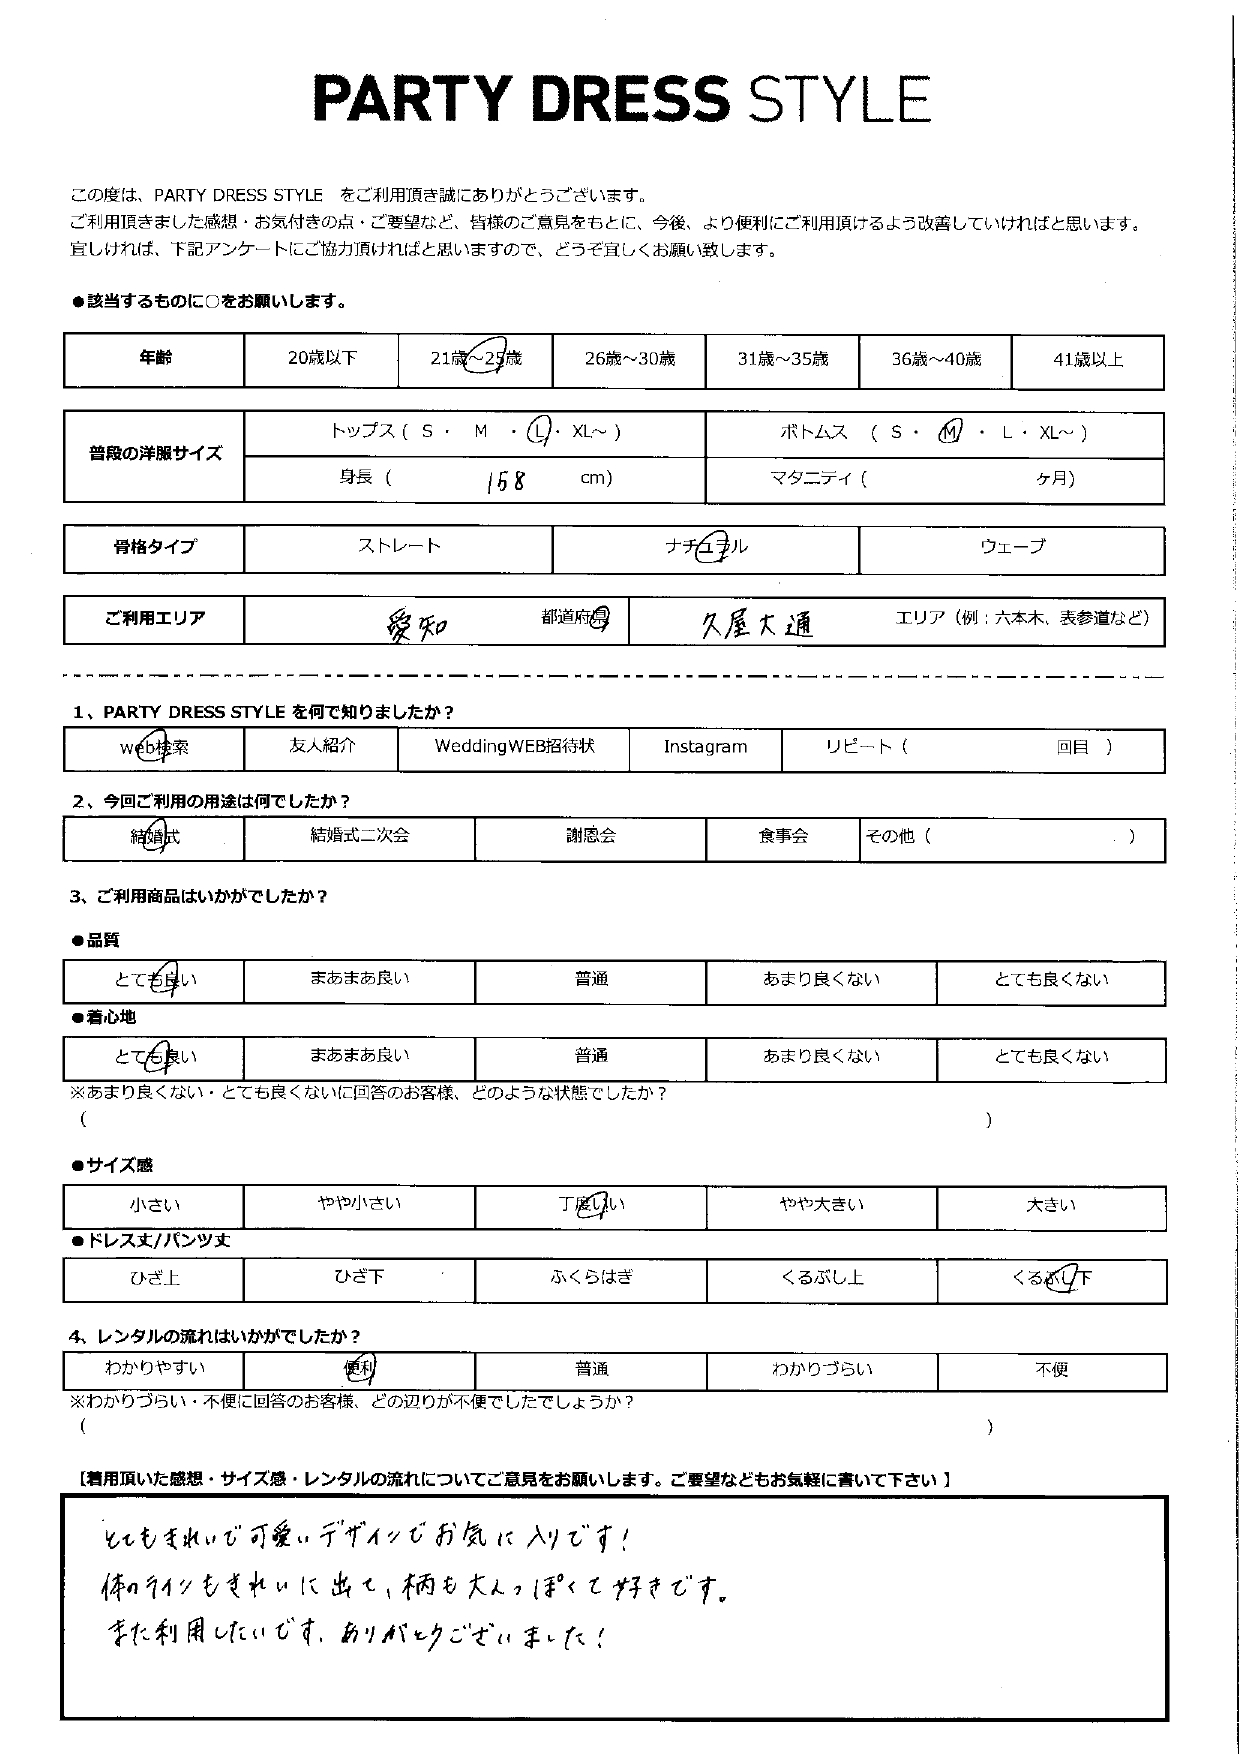 PARTY DRESS STYLE
この度は、PARTY DRESS STYLE　をご利用頂き誠にありがとうございます。
ご利用頂きました感想・お気付きの点・ご要望など、皆様のご意見をもとに、今後、より便利にご利用頂けるよう改善していければと思います。
宜しければ、下記アンケートにご協力頂ければと思いますので、どうぞ宜しくお願い致します。
●該当するものに○をお願いします。
年齢 20歳以下 21歳～25歳 26歳～30歳 31歳～35歳 36歳～40歳 41歳以上
普段の洋服サイズ トップス ( S ・ M ・ L ・ XL～ ) ボトムス ( S ・ M ・ L ・ XL～ )
身長 ( 158 cm) マタニティ ( ヶ月)
骨格タイプ ストレート ナチュラル ウェーブ
ご利用エリア 愛知 都道府県 久屋大通 エリア（例：六本木、表参道など）
1、PARTY DRESS STYLE を何で知りましたか？
web検索 友人紹介 WeddingWEB招待状 Instagram リピート ( 回目 )
2、今回ご利用の用途は何でしたか？
結婚式 結婚式二次会 謝恩会 食事会 その他 ( )
3、ご利用商品はいかがでしたか？
●品質
とても良い まあまあ良い 普通 あまり良くない とても良くない
●着心地
とても良い まあまあ良い 普通 あまり良くない とても良くない
※あまり良くない・とても良くないに回答のお客様、どのような状態でしたか？
( )
●サイズ感
小さい やや小さい 丁度いい やや大きい 大きい
●ドレス丈/パンツ丈
ひざ上 ひざ下 ふくらはぎ くるぶし上 くるぶし下
4、レンタルの流れはいかがでしたか？
わかりやすい 便利 普通 わかりづらい 不便
※わかりづらい・不便に回答のお客様、どの辺りが不便でしたでしょうか？
( )
【着用頂いた感想・サイズ感・レンタルの流れについてご意見をお願いします。ご要望などもお気軽に書いて下さい 】
とてもきれいで可愛いデザインでお気に入りです！
体のラインもきれいに出て、柄も大人っぽくて好きです。
また利用したいです。ありがとうございました！